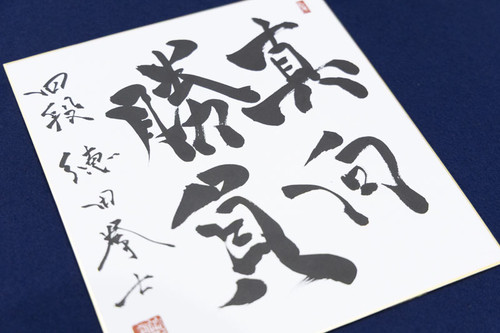 真向
勝負
四段 徳田拳士